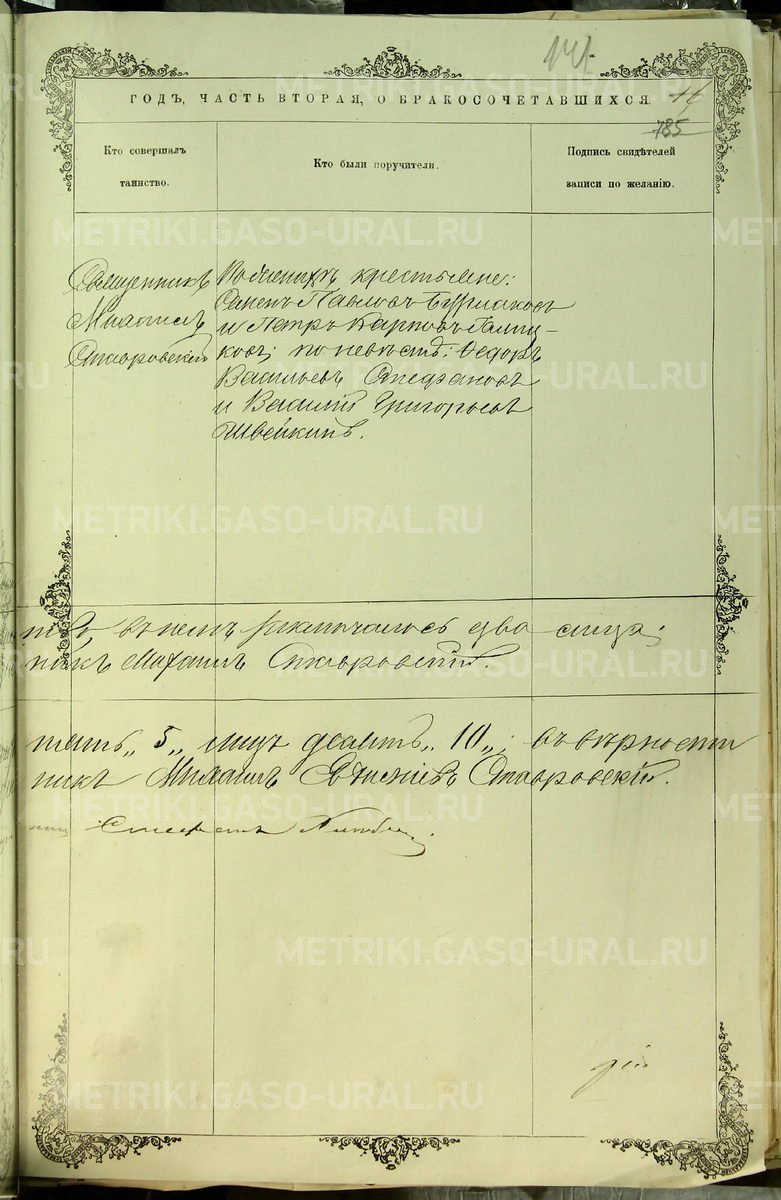 141
ГОДЪ, ЧАСТЬ ВТОРАЯ, О БРАКОСОЧЕТАВШИХСЯ.
785
Кто совершалъ
таинство.
Кто были поручители.
Подпись свидѣтелей
записи по желанію.
Священникъ
Михаилъ
Ставровскій
По женихѣ крестьяне:
Семенъ Павловъ Бурлаковъ
и Петръ Карповъ Галиц-
ковъ; по невѣстѣ: Ѳедоръ
Васильевъ Стефановъ
и Василій Григорьевъ
Швейкинъ.
въ немъ заключалось два лица;
никъ Михаилъ Ставровскій.
пять „5„ лицъ десять „10„; въ вѣрности
никъ Михаилъ Евгеніевъ Ставровскій.
Стефанъ
METRIKI.GASO-URAL.RU